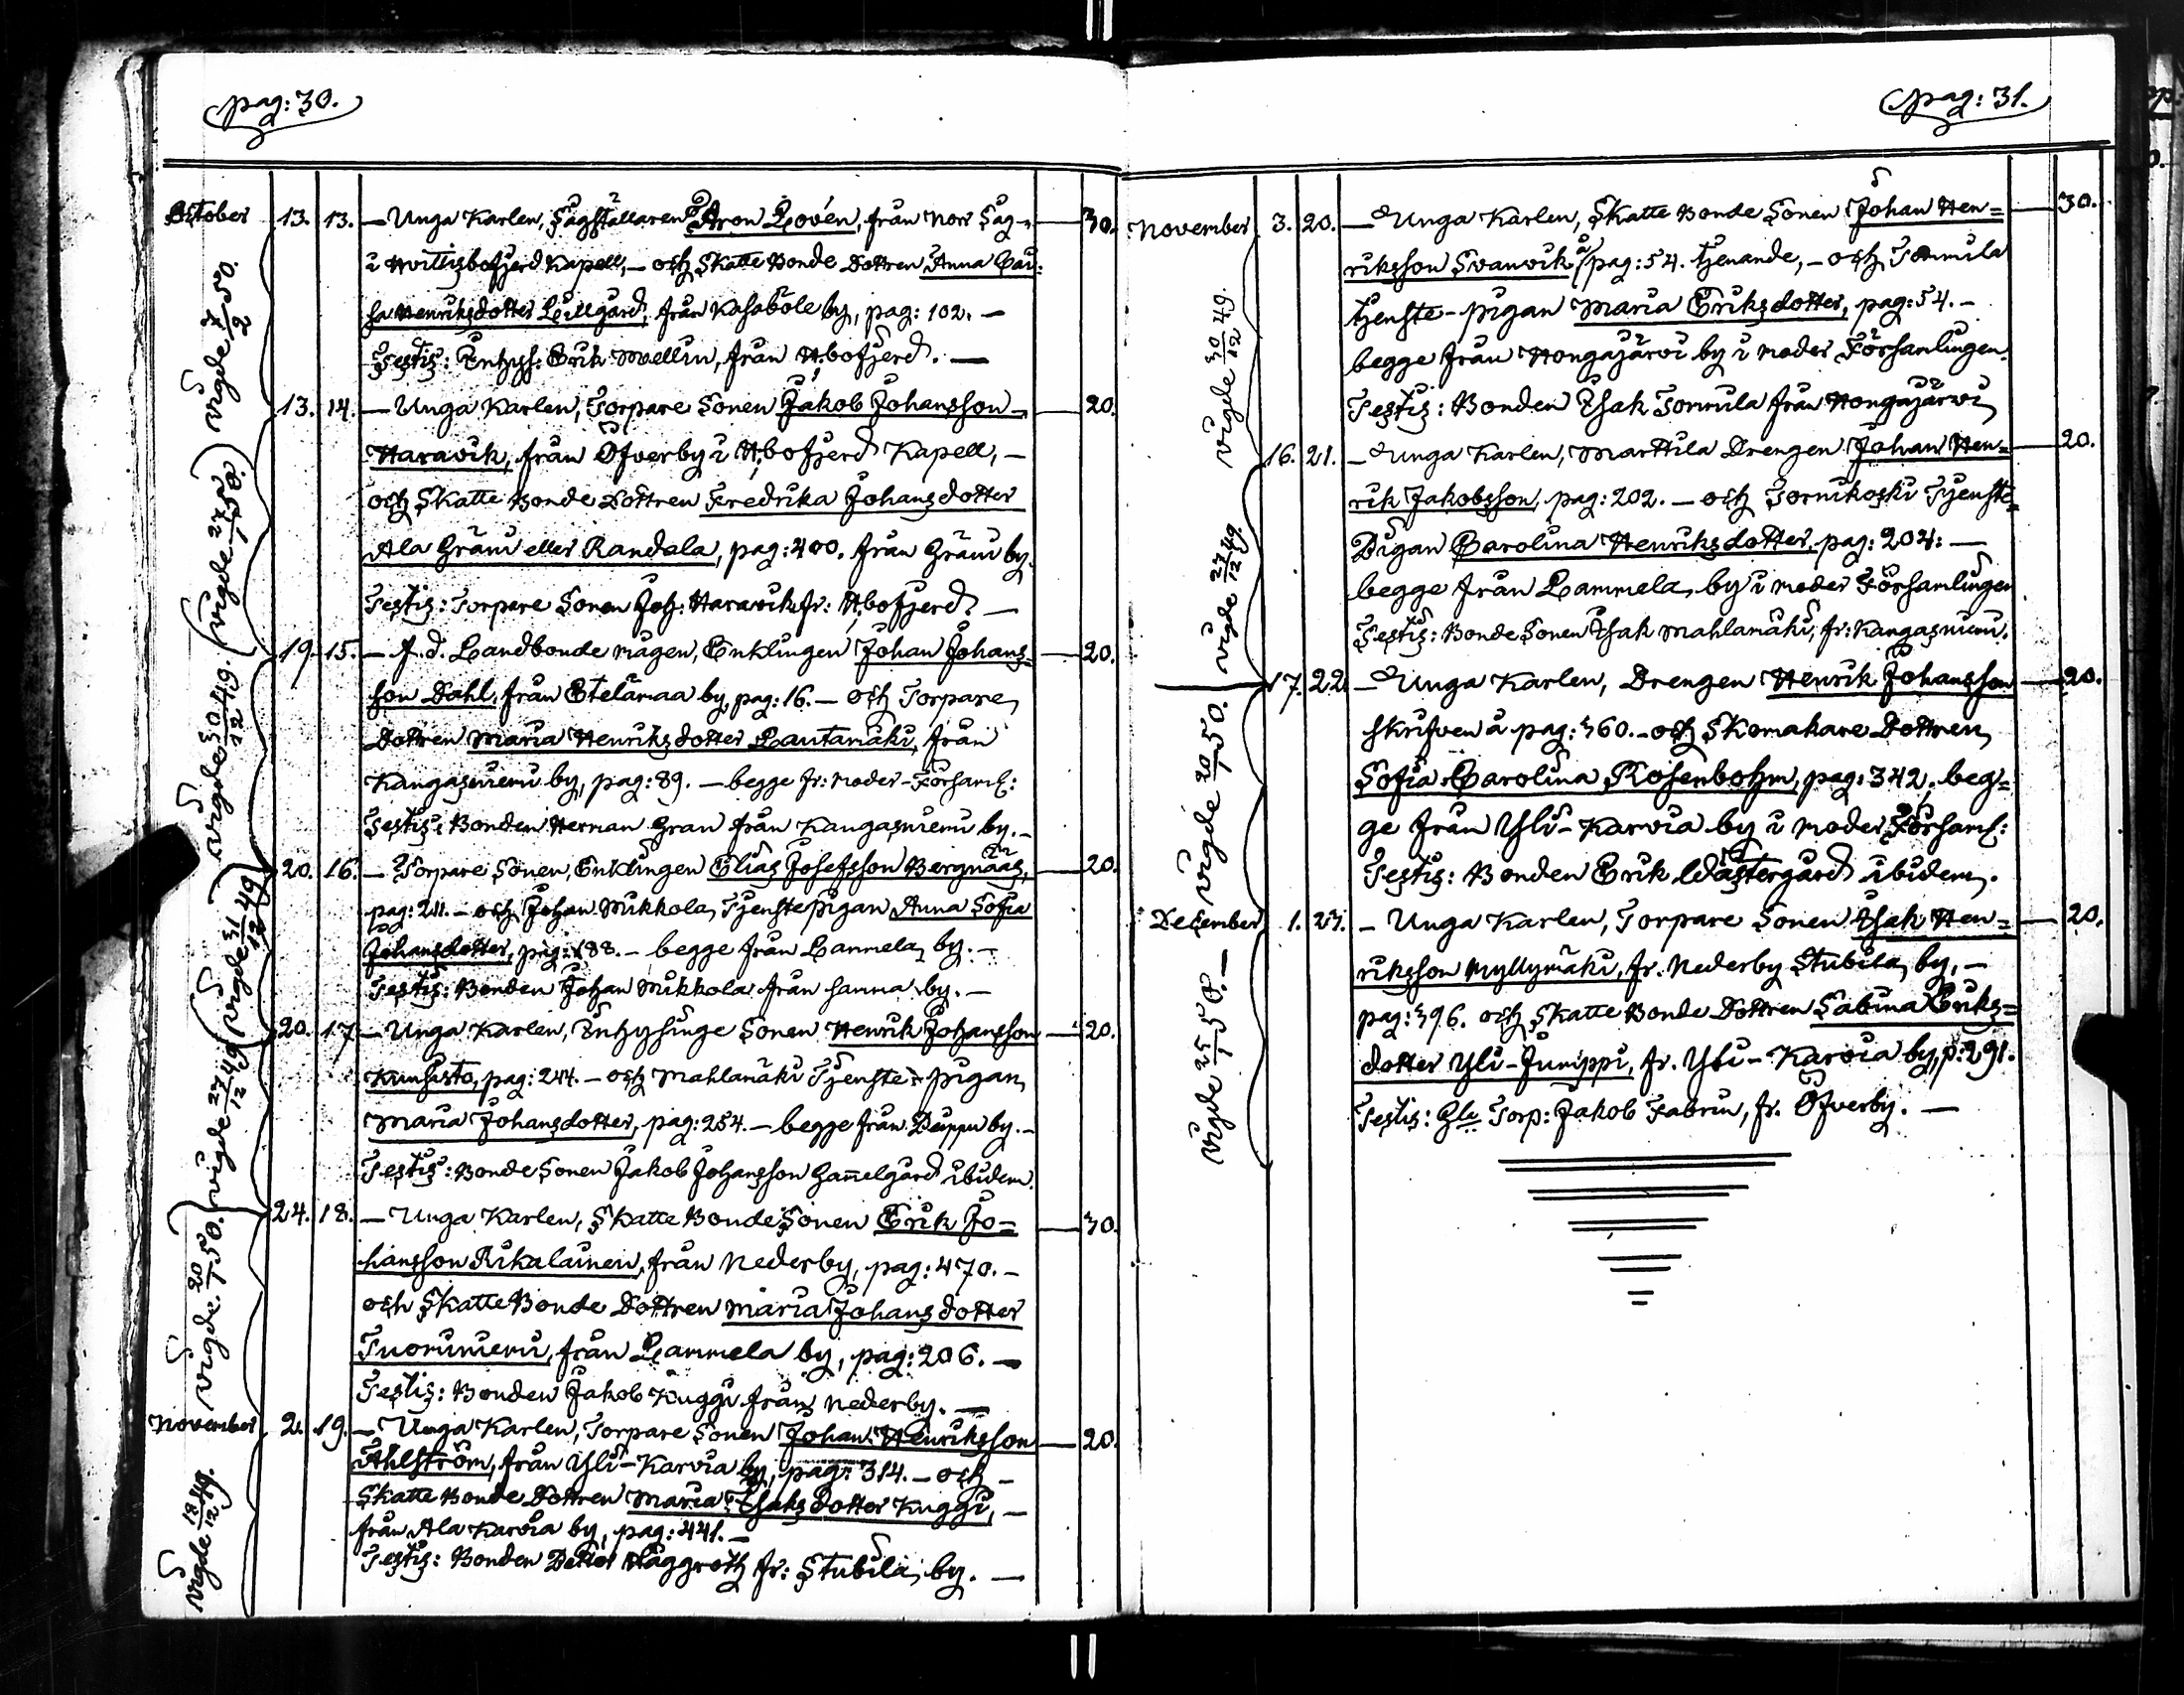 pag: 30.
October 13. 13. — Unga Karlen, Sågställaren Aron Lovén, från Norr Såg- — 30.
i Hvittisbofjerd Kapell, — och Skatte Bonde Dottren Anna Cai-
sa Henriksdotter Lillgård, från Kasaböle by, pag: 102. —
Testis: Inhys: Erik Mvellin, från H:bofjerd. —
Vigde 3/2 50.
13. 14. — Unga Karlen, Torpare Sonen Jakob Johansson — 20.
Haravik, från Öfverby i H:bofjerd Kapell, —
och Skatte Bonde Dottren Fredrika Johansdotter
Ala Gräni eller Randala, pag: 400. från Gräni by.
Testis: Torpare Sonen Joh: Haravik fr: H:bofjerd. —
Vigde 27/1 50.
19. 15. — F. d. Landbonde mågen, Enklingen Johan Johans- — 20.
son Dahl, från Etelämaa by, pag: 16. — och Torpare
Dottren Maria Henriksdotter Lautamäki, från
Kangasniemi by, pag: 89. — begge fr: Moder-Församl:
Testis: Bonden Herman Gran från Kangasniemi by. —
Vigde 30/12 49.
20. 16. — Torpare Sonen, Enklingen Elias Josefsson Bergnääs, — 20.
pag: 211. — och Johan Mikkola, Tjenstepigan Anna Sofia
Johansdotter, pag: 188. — begge från Lammela by. —
Testis: Bonden Johan Mikkola från samma by. —
Vigde 31/12 49
20. 17. — Unga Karlen, Inhysinge Sonen Henrik Johansson — 20.
Kiuhisto, pag: 244. — och Mahlamäki Tjenste-pigan
Maria Johansdotter, pag: 254. — begge från Päippu by. —
Testis: Bonde Sonen Jakob Johansson Gam̄elgård ibidem.
Vigde 27/12 49
24. 18. — Unga Karlen, Skatte Bonde Sonen Erik Jo= — 30.
hansson Rikalainen, från Nederby, pag: 470. —
och Skatte Bonde Dottren Maria Johansdotter
Tuoriniemi, från Lammela by, pag: 206. —
Testis: Bonden Jakob Kuggi från Nederby. —
Vigde. 20/1 50.
November 2. 19. — Unga Karlen, Torpare Sonen Johan Henriksson — 20.
Åhlström, från Yli-Karvia by, pag: 314. — och —
Skatte Bonde Dottren Maria Isaks dotter Kuggi, —
från Ala Karvia by, pag: 441. —
Testis: Bonden Petter Häggroth fr: Stubila by. —
Vigde 18/12 49.
pag: 31.
November 3. 20. — Unga Karlen, Skatte Bonde Sonen Johan Hen= — 30.
riksson Svanvik å pag: 54. tjenande, — och Tommila
tjenste-pigan Maria Eriksdotter, pag: 54. —
begge från Hongajärvi by i Moder Församlingen.
Testis: Bonden Isak Tommila från Hongajärvi
Vigde 30/12 49.
16. 21. — Unga Karlen, Marttila Drengen Johan Hen= — 20.
rik Jakobsson, pag: 202. — och Tornikoski Tjenste-
Pigan Carolina Henriksdotter, pag: 204: —
begge från Lammela by i Moder Församlingen
Testis: Bonde Sonen Isak Mahlamäki, fr: Kangasniemi.
Vigde 27/12 49.
17. 22. — Unga Karlen, Drengen Henrik Johansson — 20.
skrifven å pag: 360. — och Skomakare Dottren
Sofia Carolina Rosenbohm, pag: 342, beg=
ge från Yli-Karvia by i Moder Församl:
Testis: Bonden Erik Wästergård ibidem.
Vigde 20/1 50.
December 1. 23. — Unga Karlen, Torpare Sonen Isak Hen= — 20.
riksson Myllymäki, fr. Nederby Stubila by, —
pag: 396. och Skatte Bonde Dottren Sabina Eriks=
dotter Yli-Junippi, fr. Yli-Karvia by, p: 291.
Testis: Gle Torp: Jakob Fabrin, fr. Öfverby. —
Vigde 25/1 50. —